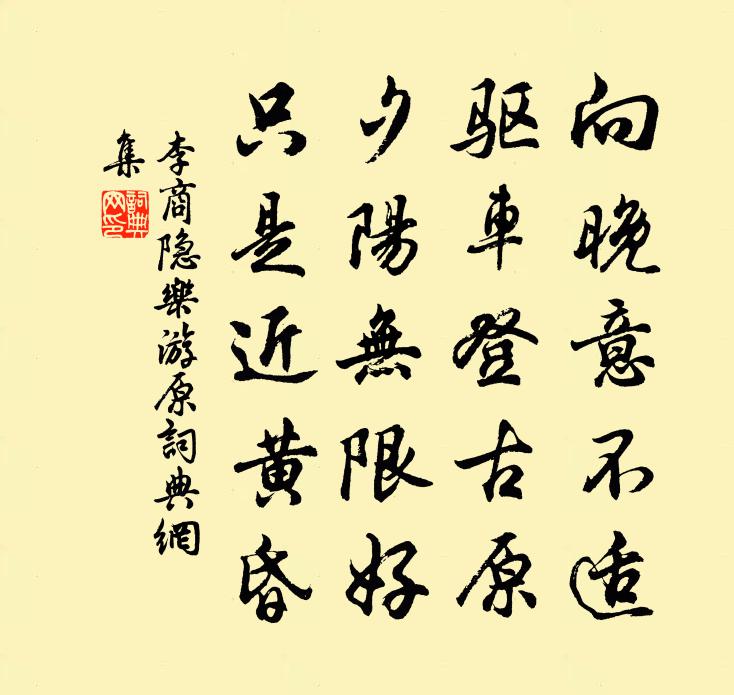 向晚意不适
驱車登古原
夕陽無限好
只是近黄昏
李商隐樂游原詞典網
集
詞典
网印